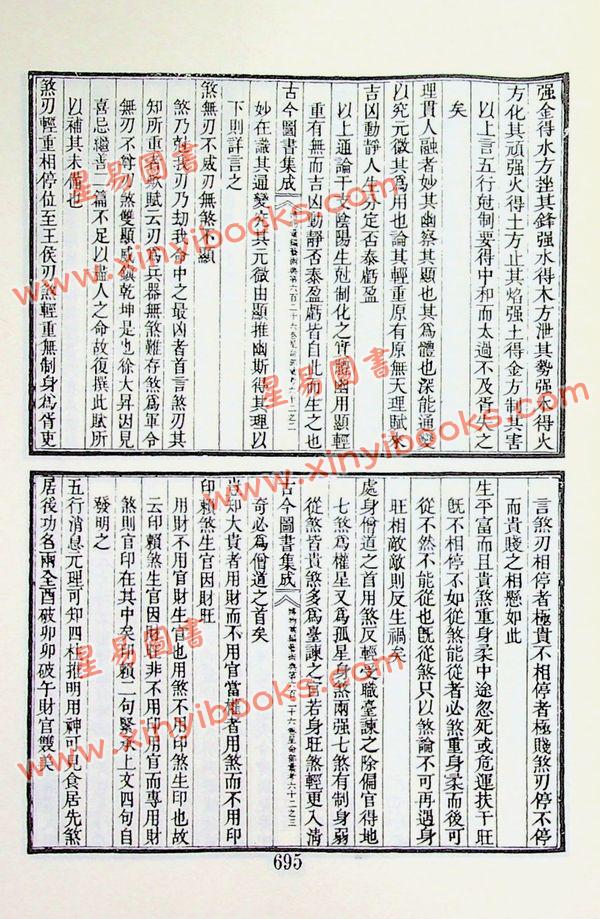 强金得水方挫其鋒强水得木方泄其勢强木得火
方化其頑强火得土方止其焰强土得金方制其害
矣
以上言五行尅制要得中和而太過不及胥失之
理貫人融者妙其幽察其顯也其為體也深能通變
以究元微其為用也論其輕重原有原無天理賦來
吉凶動靜人分定否泰虧盈
以上通論干支陰陽生尅制化之實體幽用顯輕
重有無而吉凶動靜否泰盈虧皆自此而生之也
古今圖書集成
妙在識其通變欠其元微由顯推幽斯得其理以
下則詳言之
煞無刃不威刃無煞不顯
煞乃尅我刃乃劫我命中之最凶者首言煞刃其
知所重者歌賦云刃為兵器無煞難存煞為軍令
無刃不尊刃煞雙顯威鎮乾坤是也徐大昇因見
喜忌繼善二篇不足以盡人之命故復撰此賦所
以補其未備也
煞刃輕重相停位至王侯刃煞輕重無制身為胥吏
言煞刃相停者極貴不相停者極賤煞刃停不停
而貴賤之相懸如此
生平富而且貴煞重身柔中途忽死或危運扶干旺
既不相停不如從煞能從者必煞重身柔而後可
從不然不能從也既從煞只以煞論不可再遇身
旺相敵敵則反生禍矣
處身僧道之首用煞反輕受職臺諫之除偏官得地
七煞為權星又為孤星身煞兩强七煞有制身弱
從煞皆貴煞多為臺諫之官若身旺煞輕更入清
古今圖書集成
奇必為僧道之首矣
當知大貴者用財而不用官當權者用煞而不用印
印賴煞生官因財旺
用財不用官財生官也用煞不用印煞生印也故
云印賴煞生官因財旺非不用印用官而專用財
煞則官印在其中矣印賴二句緊承上文四句自
發明之
五行消息元理可知四柱推明用神可見食居先煞
居後功名兩全酉破卯卯破午財官雙美
695
星易圖書
www.xinyibooks.com
星易圖書
www.xinyibooks.com
星易圖書
www.xinyibooks.com